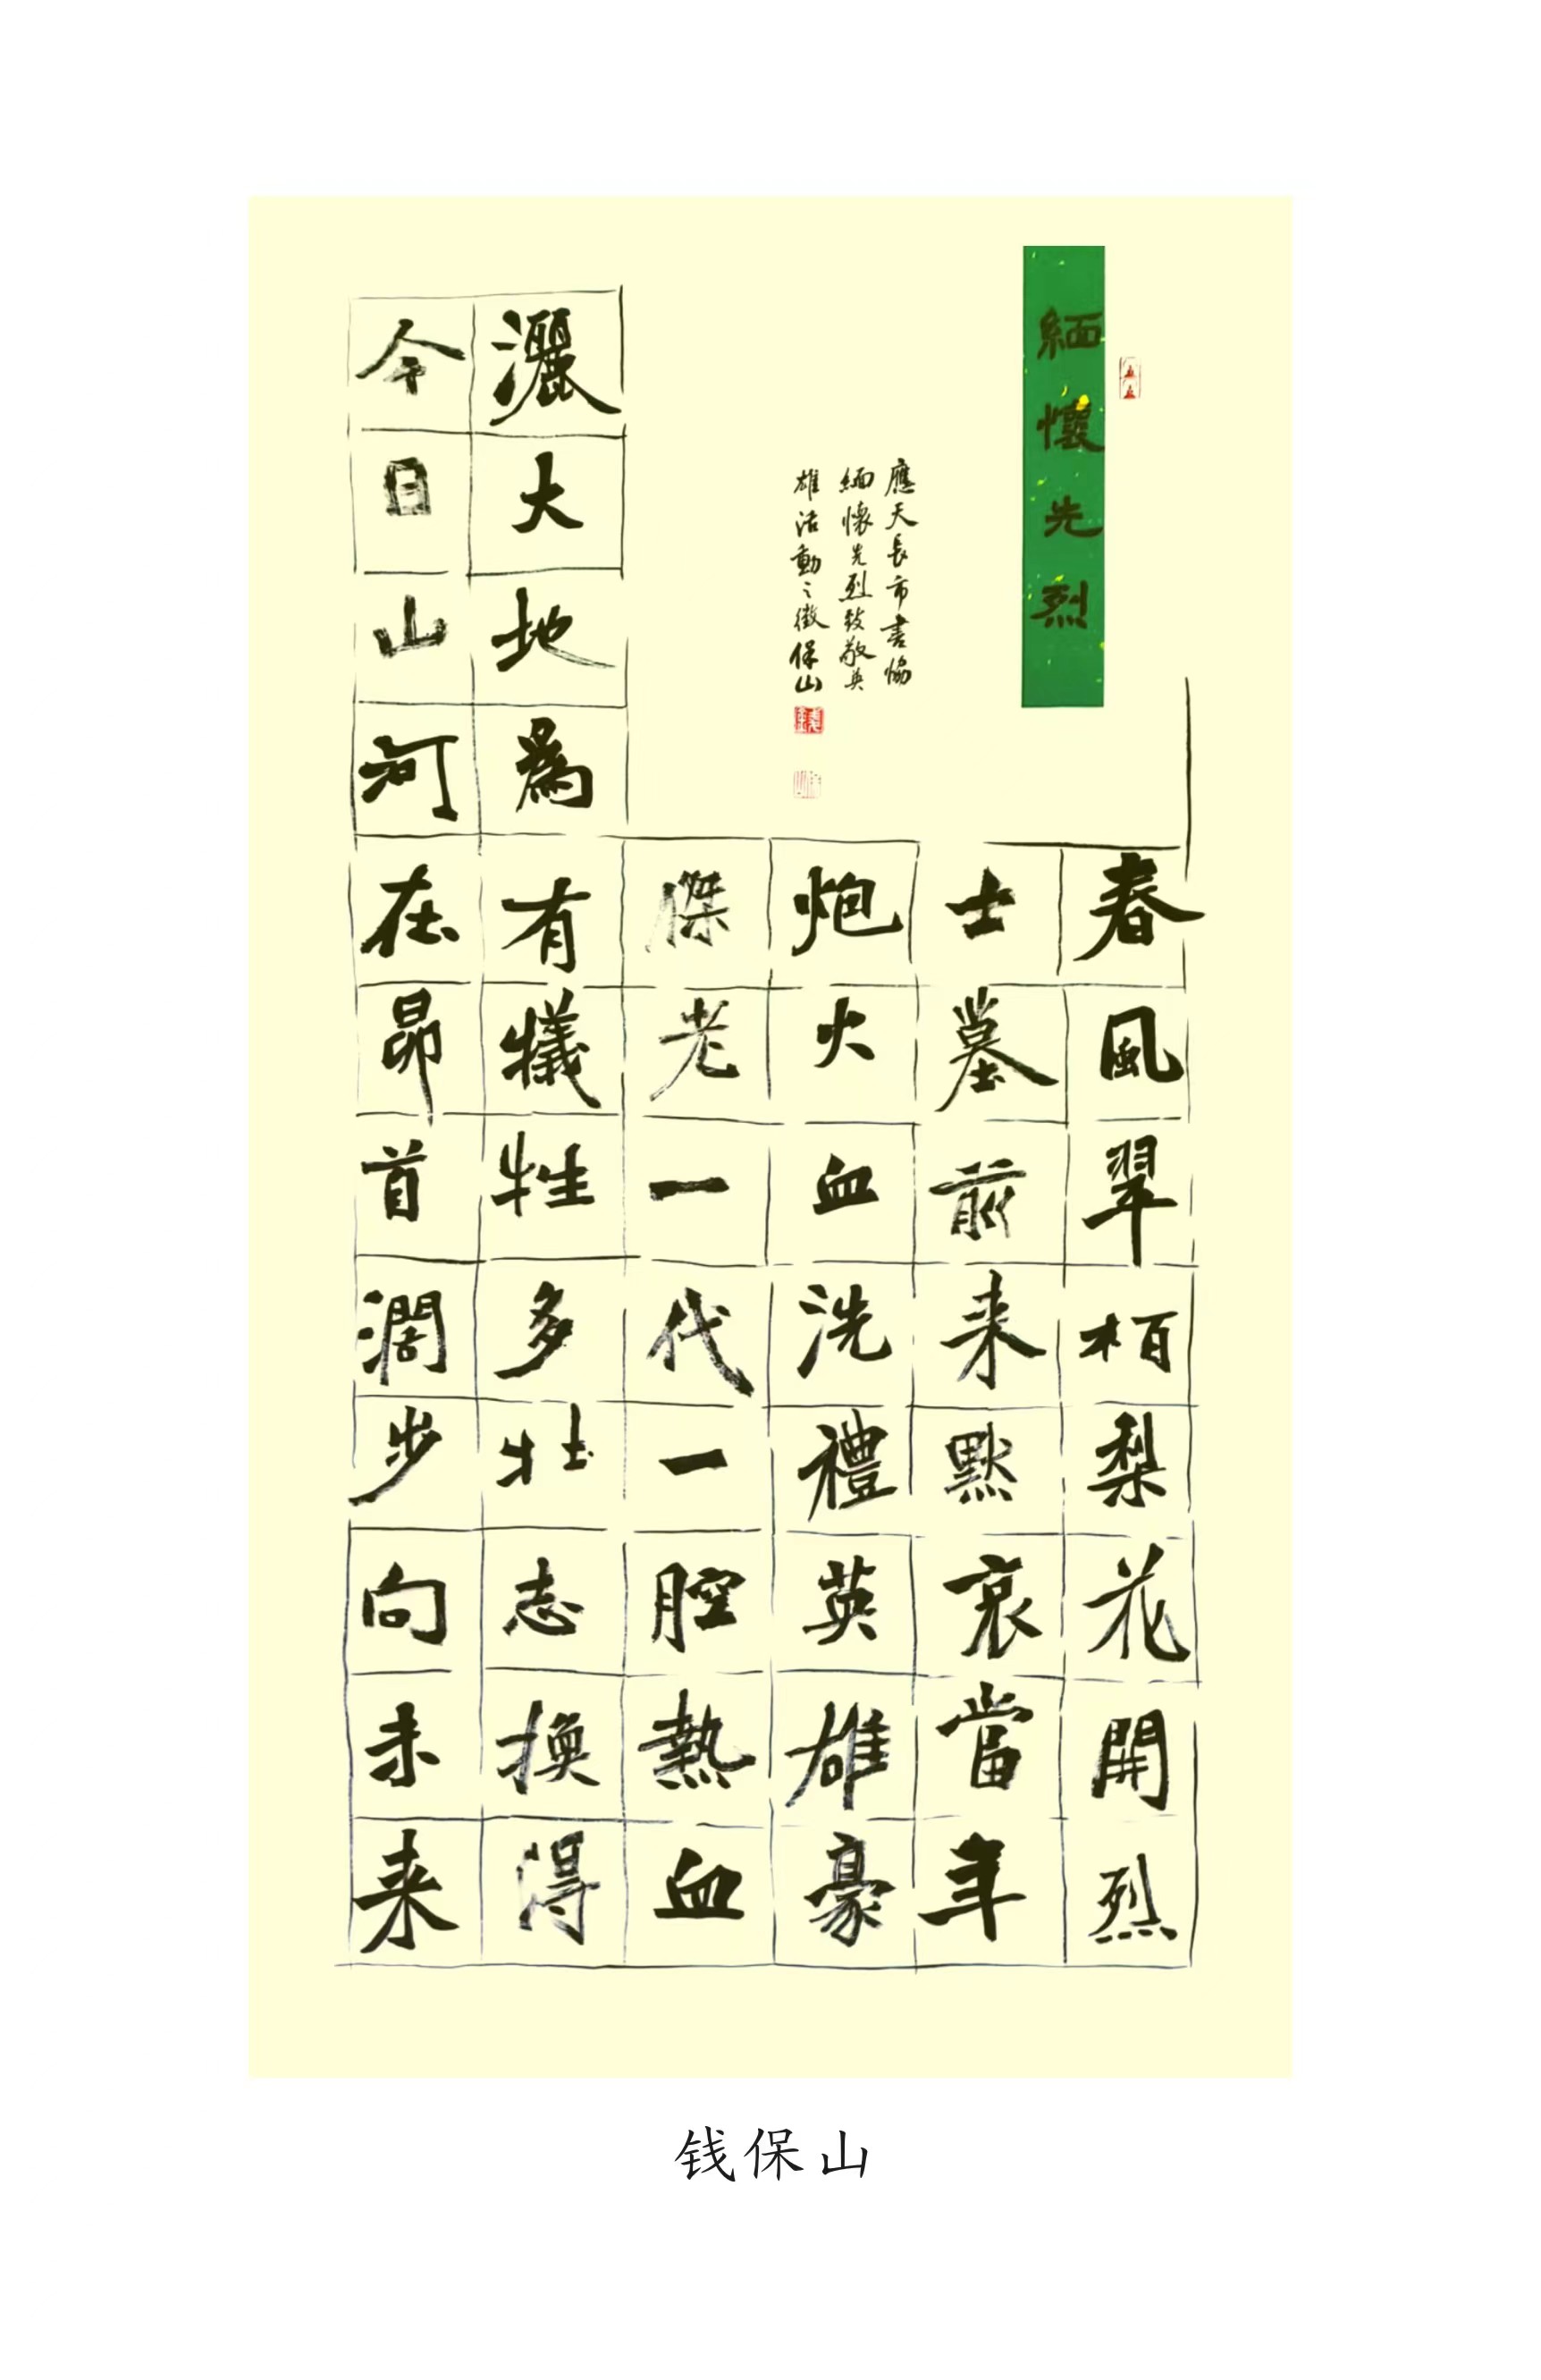 緬懷先烈
春風翠柏梨花開烈
士墓前来默哀當年
炮火血洗禮英雄豪
傑老一代一腔熱血
灑大地為有犧牲多壯志換得
今日山河在昂首濶步向未来
應天長市書協
緬懷先烈致敬英
雄活動之徵保山
钱保山